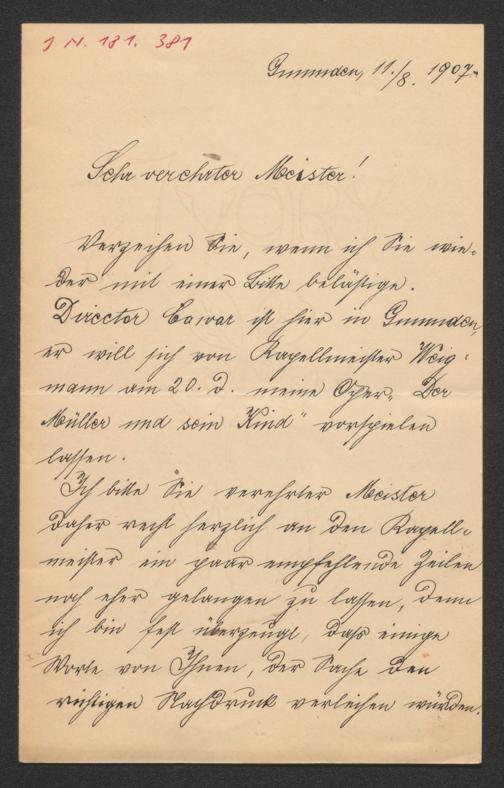 J N. 181. 381
Gmunden, 11./8. 1907.
Sehr verehrter Meister!
Verzeihen Sie, wenn ich Sie wie-
der mit einer Bitte belästige.
Director Cavar ist hier in Gmunden,
er will sich von Kapellmeister Weig-
mann am 20. d. meine Oper „Der
Müller und sein Kind" vorspielen
lassen.
Ich bitte Sie verehrter Meister
daher recht herzlich an den Kapell-
meister ein paar empfehlende Zeilen
noch eher gelangen zu lassen, denn
ich bin fest überzeugt, daß einige
Worte von Ihnen, der Sache den
richtigen Nachdruck verleihen würden.